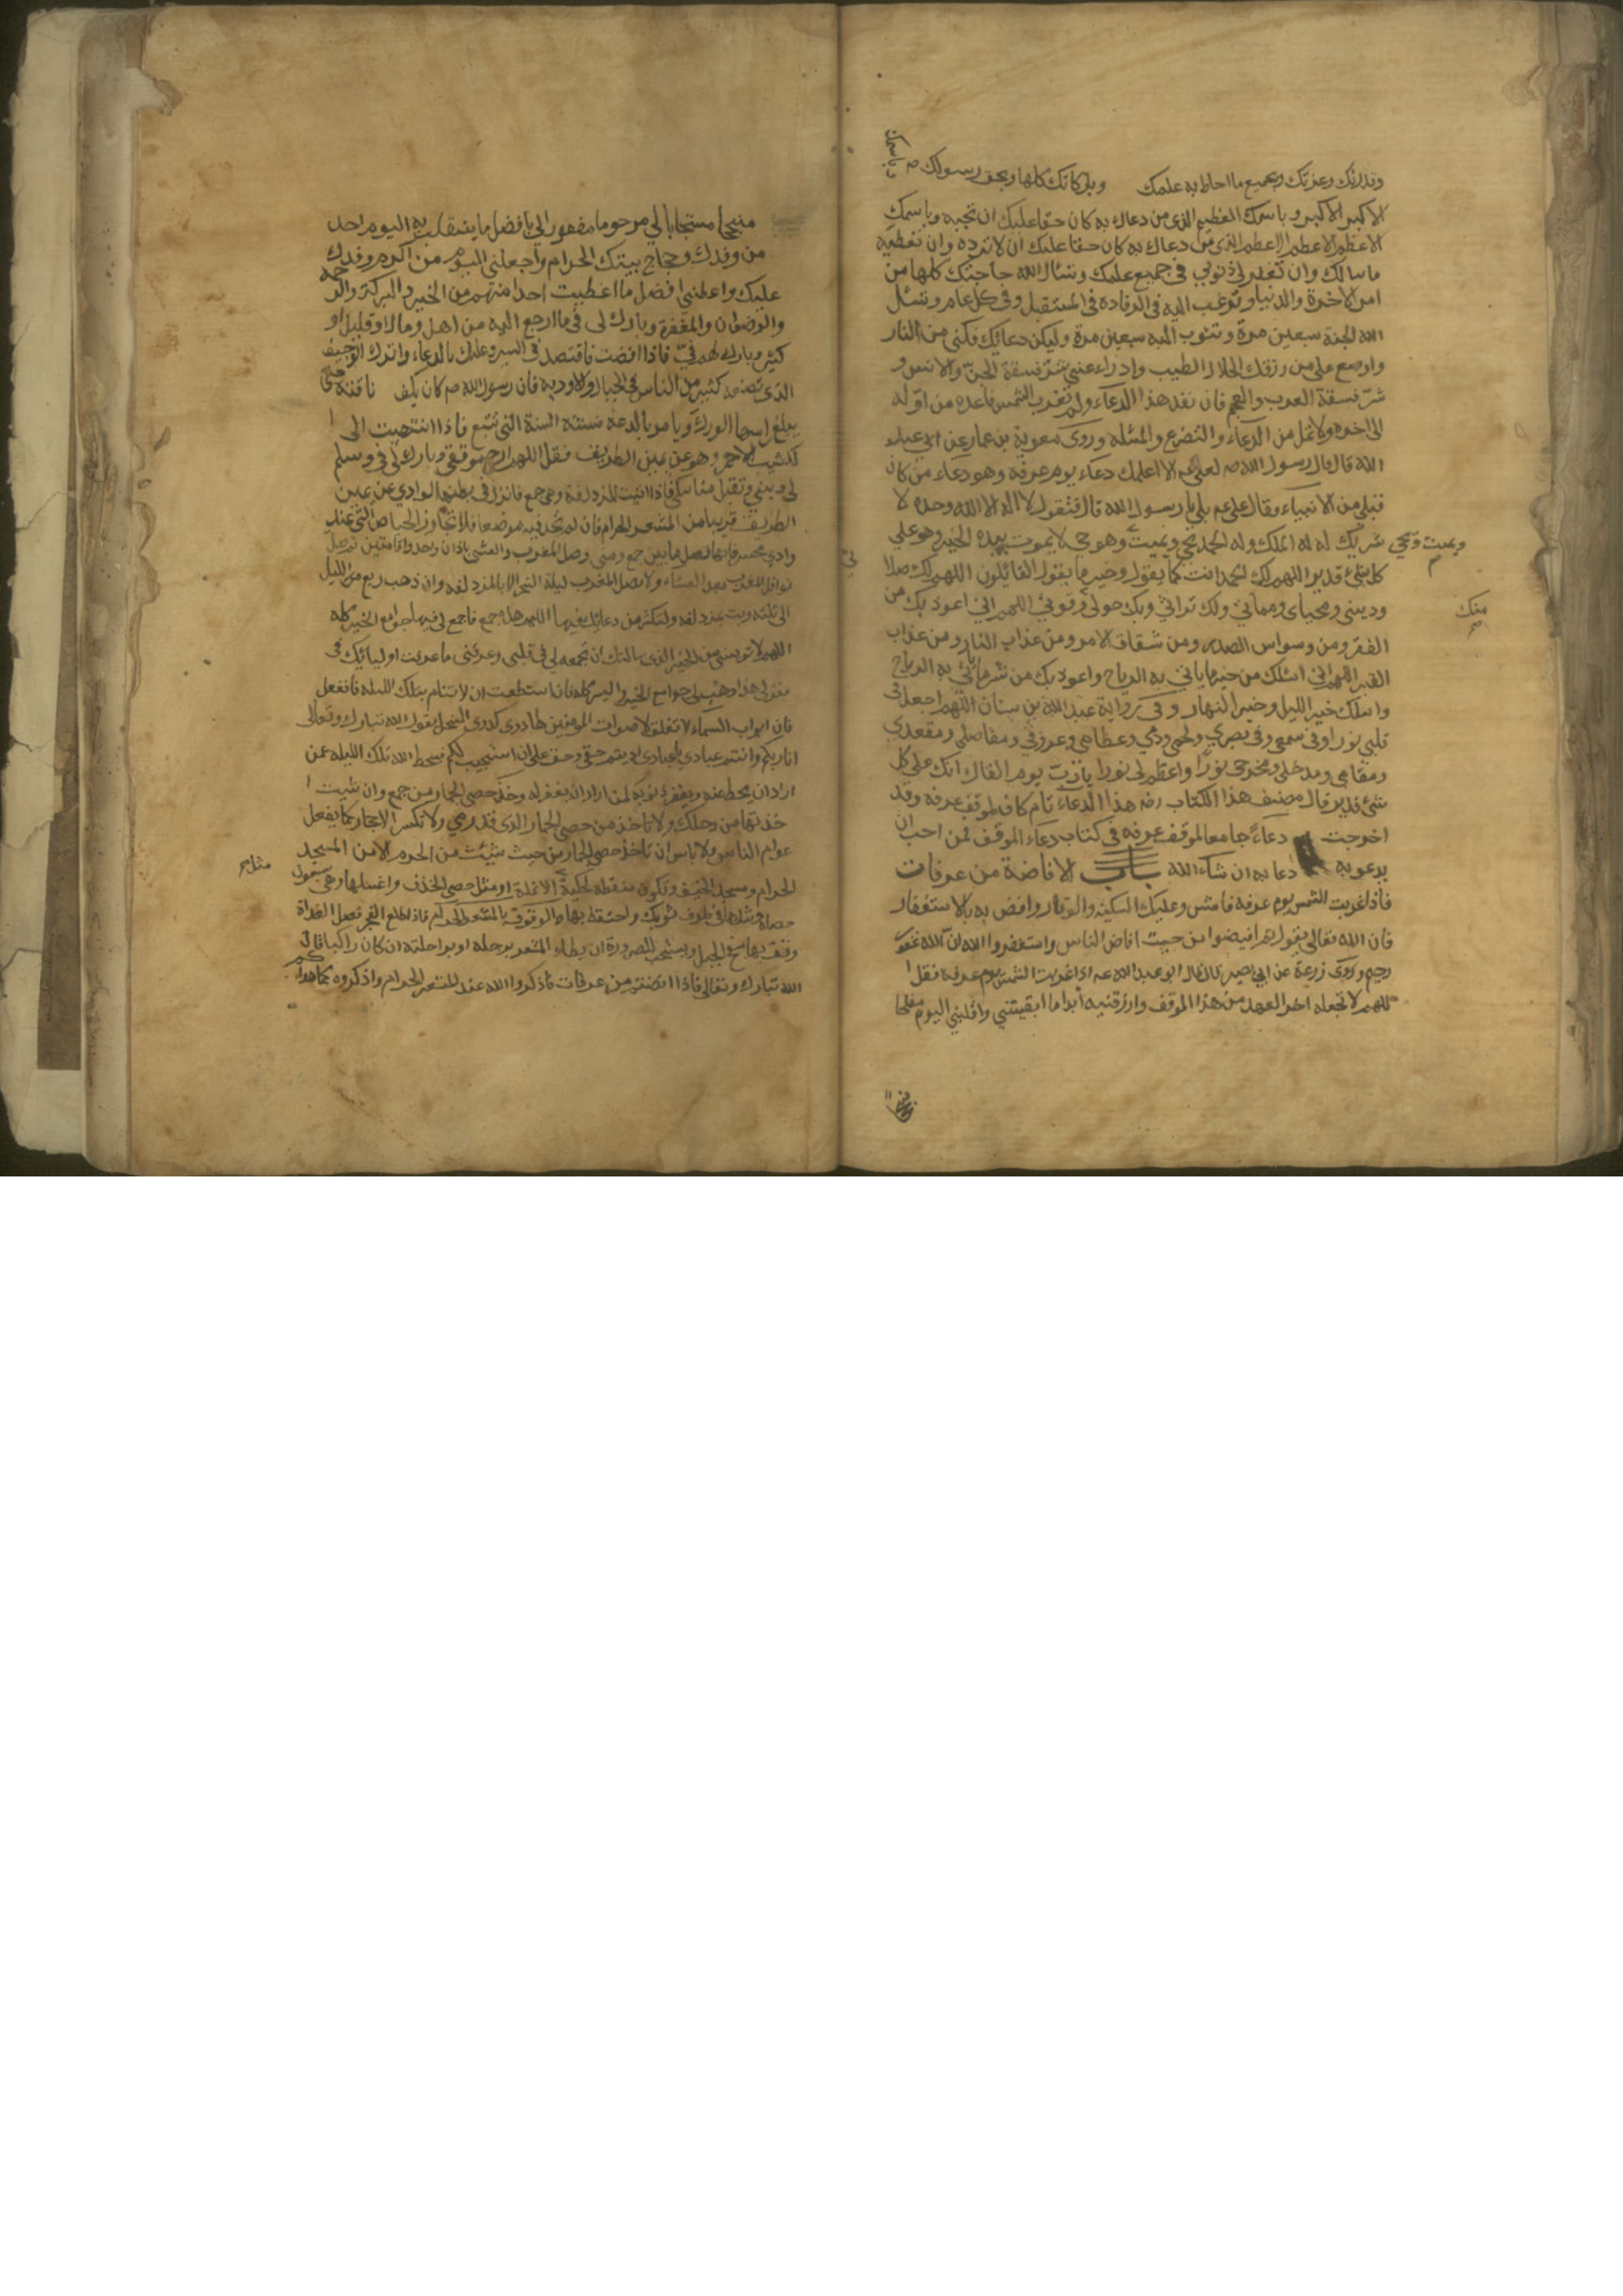 وقدرتك وعزتك وبجميع ما احاط به علمك وباركانك كلها وبحق رسولك ص وباسمك
الاكبر الاكبر وباسمك العظيم الذي من دعاك به كان حقا عليك ان تجيبه وباسمك
الاعظم الاعظم الاعظم الذي من دعاك به كان حقا عليك ان لا ترده وان تعطيه
ما سالك وان تغفر لي ذنوبي في جميع علمك وتسال الله حاجتك كلها من
امر الاخرة والدنيا وترغب اليه في الوفادة في المستقبل وفي كل عام وتسئل
الله الجنة سبعين مرة وتتوب اليه سبعين مرة وليكن دعائك فكني من النار
واوسع علي من رزقك الحلال الطيب وادراء عني شر فسقة الجن والانس و
شر فسقة العرب والعجم فان نفد هذا الدعاء ولم تغرب الشمس فاعده من اوله
الى اخره ولا تمل من الدعاء والتضرع والمسئله وروى معوية بن عمار عن ابي عبد
الله قال قال رسول الله ص لعلي عم الا اعلمك دعاء يوم عرفه وهو دعاء من كان
قبلي من الانبياء وقال علي عم بلى يا رسول الله قال فتقول لا اله الا الله وحده لا
شريك له له الملك وله الحمد يحيي ويميت وهو حي لا يموت بيده الخير وهو على
ويميت ويحيي
كل شيء قدير اللهم لك الحمد انت كما تقول وخير ما يقول القائلون اللهم لك صلاتي
وديني ومحياي ومماتي ولك تراثي وبك حولي وقوتي اللهم اني اعوذ بك من
منك
الفقر ومن وسواس الصدر ومن شقاق الامر ومن عذاب النار ومن عذاب
القبر اللهم اني اسئلك من خير ما ياتي به الرياح واعوذ بك من شر ما ياتي به الرياح
واسئلك خير الليل وخير النهار وفي رواية عبد الله بن سنان اللهم اجعل في
قلبي نورا وفي سمعي وفي بصري ولحمي ودمي وعظامي وعروقي ومفاصلي ومقعدي
ومقامي ومدخلي ومخرجي نورا واعظم لي نورا يا رب يوم القاك انك على كل
شئ قدير قال مصنف هذا الكتاب رضه هذا الدعاء تام كاف لموقف عرفه وقد
اخرجت دعاء جامعا لموقف عرفه في كتاب دعاء الموقف فمن احب ان
يدعو به دعا به ان شاء الله باب الافاضة من عرفات
فاذا غربت الشمس يوم عرفه فامش وعليك السكينه والوقار وافض به بالاستغفار
فان الله تعالى يقول ثم افيضوا من حيث افاض الناس واستغفروا الله ان الله غفور
رحيم وروى زرعة عن ابي بصير قال قال ابو عبد الله عه اذا غربت الشمس يوم عرفه فقل ا
للهم لا تجعله اخر العهد من هذا الموقف وارزقنيه أبدا ما ابقيتني واقلبني اليوم مفلحا
منجحا
منجحا مستجابا لي مرحوما مغفورا لي بافضل ما ينقلب به اليوم احد
من وفدك وحجاج بيتك الحرام واجعلني اليوم من اكرم وفدك
عليك واعطني افضل ما اعطيت احدا منهم من الخير والبركة والرحمه
والرضوان والمغفرة وبارك لي فيما ارجع اليه من اهل ومال او قليل او
كثير وبارك لهم في فاذا افضت فاقتصد في السير وعليك بالدعاء واترك الوجيف
الذي تصنعه كثير من الناس في الجبال والاوديه فان رسول الله ص كان يكف ناقته حتى
يبلغ راسها الورك ويامر بالدعه وسنته السنة التي تتبع فاذا انتهيت الى ا
لكثيب الاحمر وهو عن يمين الطريق فقل اللهم ارحم موقفي وبارك لي في وسلم
لي ديني وتقبل مناسكي فاذا اتيت المزدلفة وهي جمع فانزل في بطن الوادي عن يمين
الطريق قريبا من المشعر الحرام فان لم تجد فيه موضعا فلا تتجاوز الحياض التي عند
وادي محسر فانها فصل ما بين جمع ومنى وصل المغرب والعشى باذان واحد واقامتين ثم صل
نوافل المغرب بعد العشاء ولا تصل المغرب ليلة النحر الا بالمزدلفه وان ذهب ربع من الليل
الى ثلثه وبت بمزدلفه وليكن من دعائك فيها اللهم هذه جمع فاجمع لي فيها جوامع الخير كله
اللهم لا تويسني من الخير الذي سالتك ان تجمعه لي في قلبي وعرفني ما عرفت اوليائك في
منزلي هذا وهب لي جوامع الخير واليسر كله فان استطعت ان لا تنام تلك الليله فافعل
فان ابواب السماء لا تغلق لاصوات المؤمنين لها دوي كدوي النحل يقول الله تبارك وتعالى
انا ربكم وانتم عبادي يا عبادي اديتم حقي وحق علي ان استجيب لكم فيحط الله تلك الليله عمن
اراد ان يحط عنه ويغفر ذنوبه لمن اراد ان يغفر له وخذ حصى الجمار من جمع وان شئت ا
خذتها من رحلك ولا تاخذ من حصى الجمار الذي قد رمي ولا تكسر الاحجار كما يفعل
عوام الناس ولا باس ان تاخذ حصى الجمار من حيث شئت من الحرم الا من المسجد
الحرام ومسجد الخيف وتكون منقطه كحلية الانملة او مثل حصى الخذف واغسلها وهي سبعون
مثل
حصاة وشدها في طرف ثوبك واحتفظ بها والوقوف بالمشعر الحرام فاذا طلع الفجر فصل الغداة
وقف بها بسفح الجبل ويستحب للصرورة ان يطاء المشعر برجله او براحلته ان كان راكبا قال
الله تبارك وتعالى فاذا افضتم من عرفات فاذكروا الله عند المشعر الحرام واذكروه كما هداكم